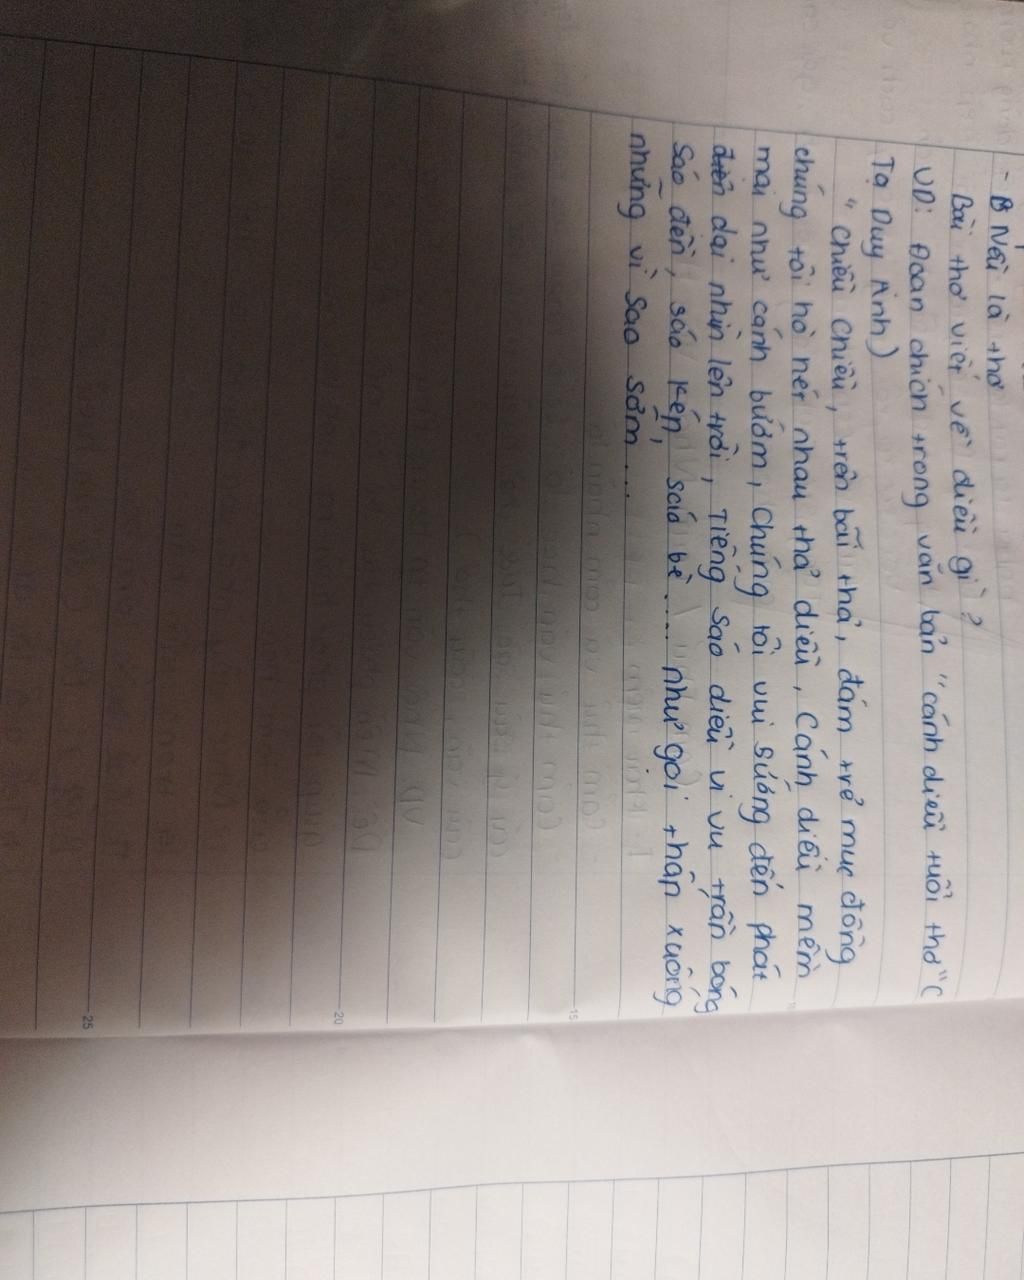 - Nếu là thơ
Bài thơ viết về điều gì?
VD: Đoạn chích trong văn bản "cánh diều tuổi thơ" (
Tạ Duy Anh)
" chiều chiều, trên bãi thả, đám trẻ mục đồng
chúng tôi hò hét nhau thả diều, cánh diều mềm
mại như cánh bướm, chúng tôi vui sướng đến phát
dại nhìn lên trời, Tiếng sáo diều vi vu trầm bổng
Sáo đền, sáo kép, saó bè.... như gọi thấp xuống
những vì sao sớm...
15
20
25